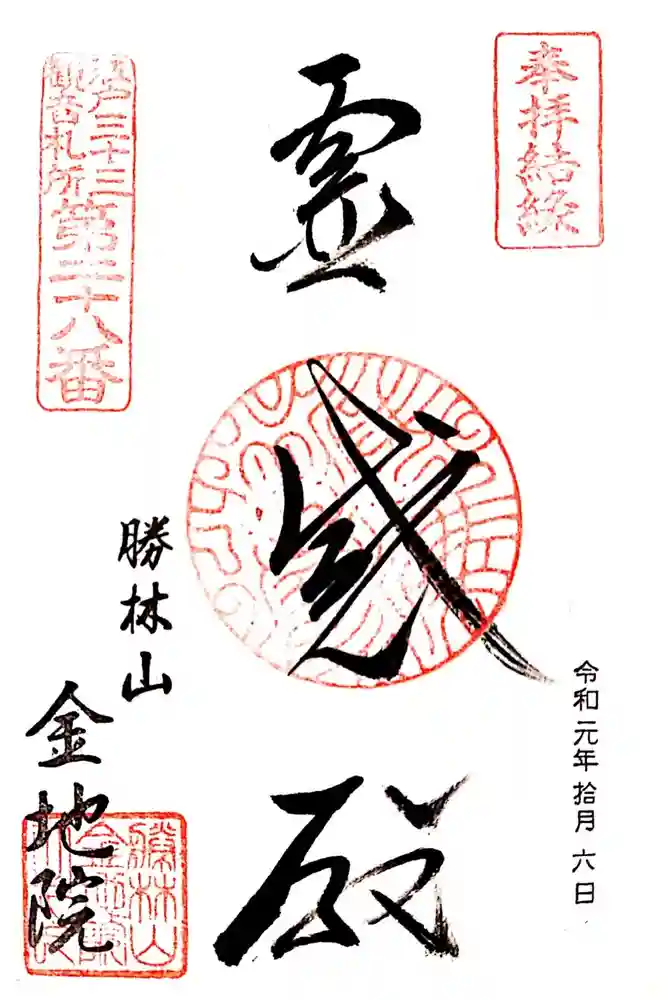 奉拝結縁
令和元年拾月六日
霊感殿
江戸三十三
観音札所
第二十八番
勝林山
金地院
勝林山
金地院